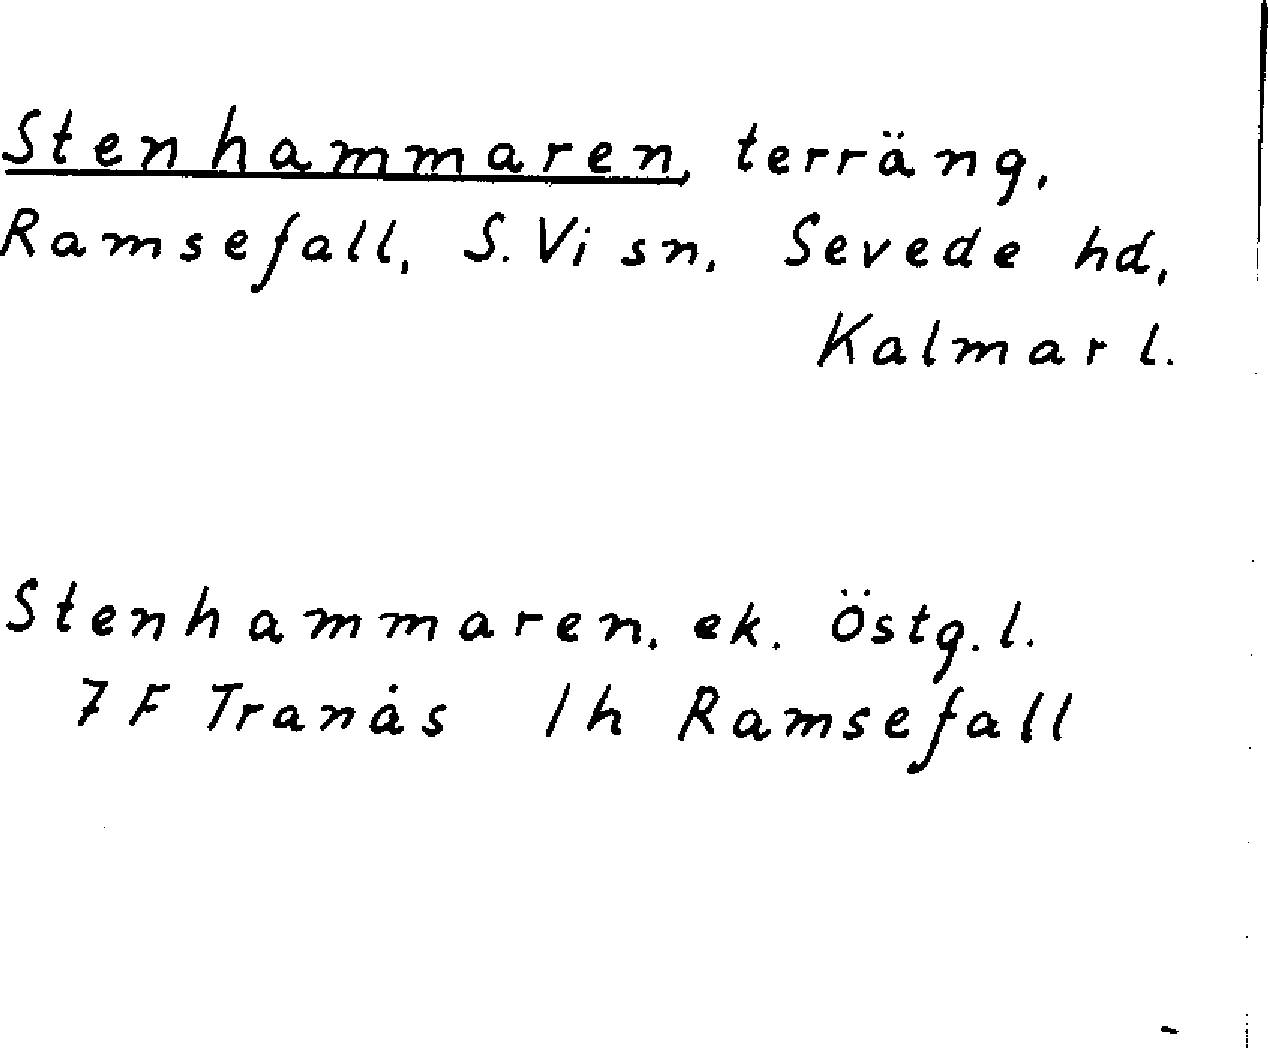 Stenhammaren, terräng,
Ramsefall, S. Vi sn, Sevede hd,
Kalmar l.
Stenhammaren, ek. Östg. l.
7 F Tranås 1h Ramsefall